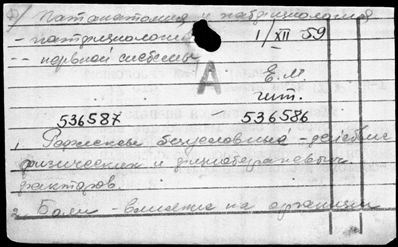 7) Патанатомия и патфизиология
- патфизиология 1/XII 59
-- нервной системы
А
Е. М.
чит.
536587 - 536586
1. безусловные - действие
физических и физиотерапевтич.
факторов.
2. Боли - влияние на организм